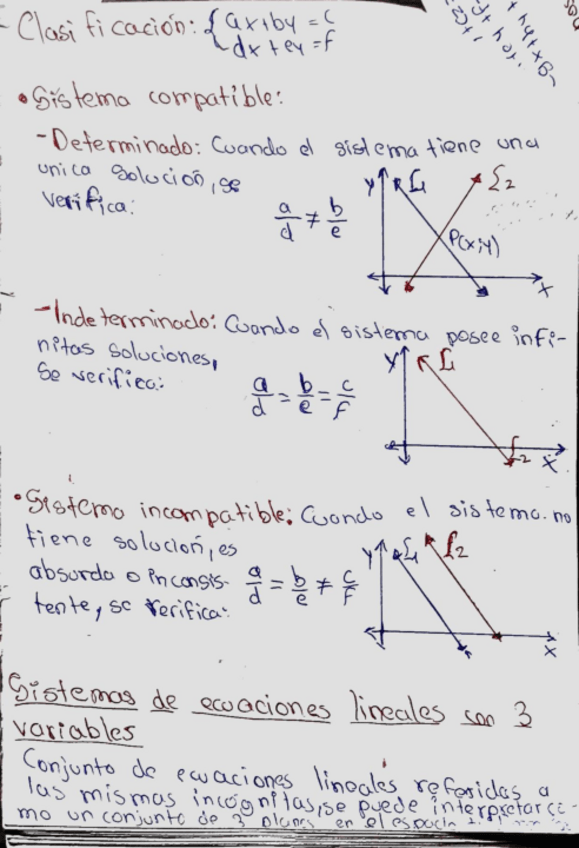 Clasificación: {ax+by=c
dx+ey=f
• Sistema compatible:
- Determinado: Cuando el sistema tiene una
unica solución, se
verifica:
a/d ≠ b/e
Y L1 L2
P(x;y)
X
- Indeterminado: Cuando el sistema posee infi-
nitas soluciones,
se verifica:
a/d = b/e = c/f
Y L1
L2 X
• Sistema incompatible: Cuando el sistema no
tiene solución, es
absurda o incansis-
tente, se verifica:
a/d = b/e ≠ c/f
Y L1 L2
X
Sistemas de ecuaciones lineales con 3
variables
Conjunto de ecuaciones lineales referidas a
las mismas incógnitas, se puede interpretar co-
mo un conjunto de 3 planos en el espacio